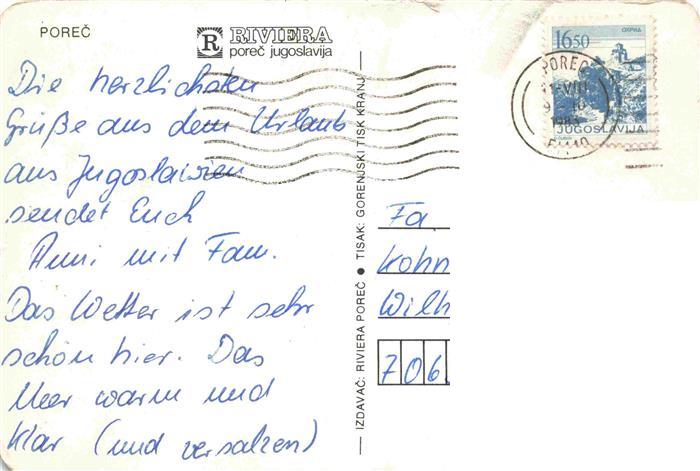 POREČ
R RIVIERA
poreč jugoslavija
Die herzlichsten
Grüße aus dem Urlaub
aus Jugoslawien
sendet Euch
Anni mit Fam.
Das Wetter ist sehr
schön hier. Das
Meer warm und
klar (und versalzen)
IZDAVAČ: RIVIERA POREČ ● TISAK: GORENJSKI TISK KRANJ
16.50
OHRID
JUGOSLAVIJA
POREČ
Fa.
Kohn
Wilh
706